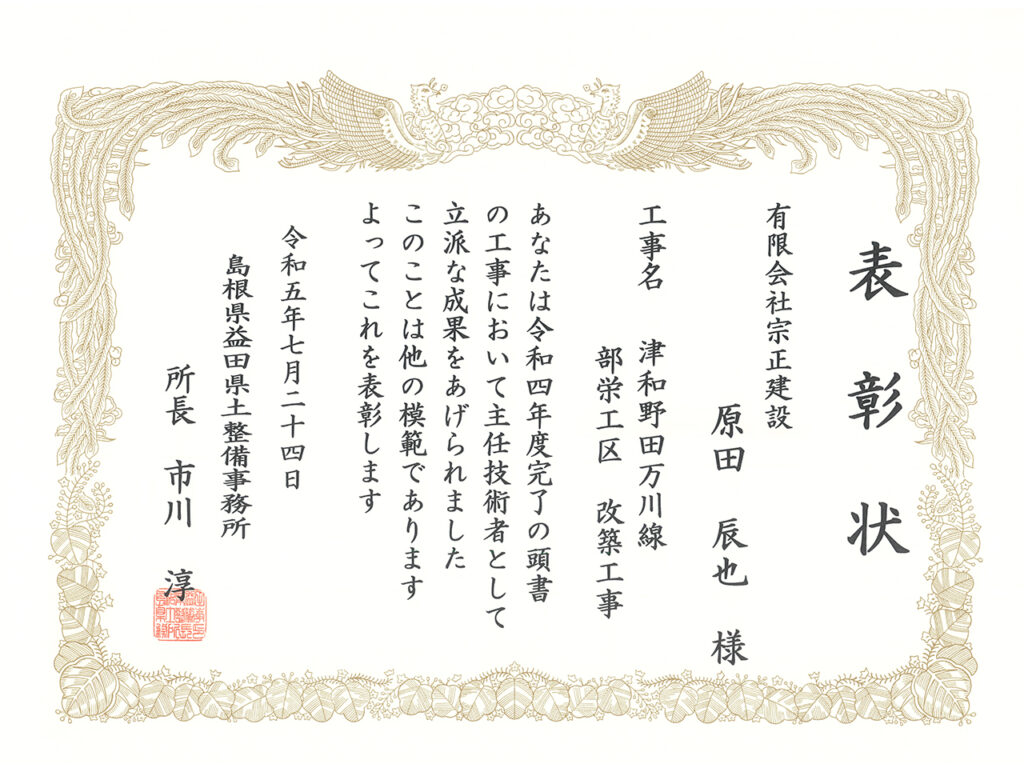 表彰状
有限会社宗正建設
原田 辰也 様
工事名 津和野田万川線
部栄工区 改築工事
あなたは令和四年度完了の頭書
の工事において主任技術者として
立派な成果をあげられました
このことは他の模範であります
よってこれを表彰します
令和五年七月二十四日
島根県益田県土整備事務所
所長 市川 淳